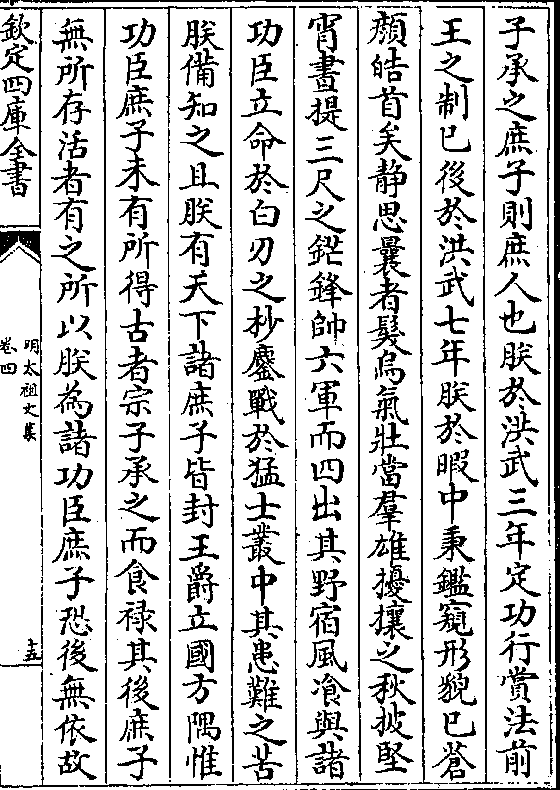 子承之庶子則庶人也朕於洪武三年定功行賞法前
王之制已後於洪武七年朕於暇中秉鑑窺形貌已蒼
顏皓首矣靜思曩者髮烏氣壯當羣雄擾攘之秋披堅
宵晝提三尺之鋩鋒帥六軍而四出其野宿風飡與諸
功臣立命於白刃之杪鏖戰於猛士叢中其患難之苦
朕備知之且朕有天下諸庶子皆封王爵立國方隅惟
功臣庶子未有所得古者宗子承之而食祿其後庶子
無所存活者有之所以朕為諸功臣庶子恐後無依故
欽定四庫全書
明太祖文集
卷四
十五